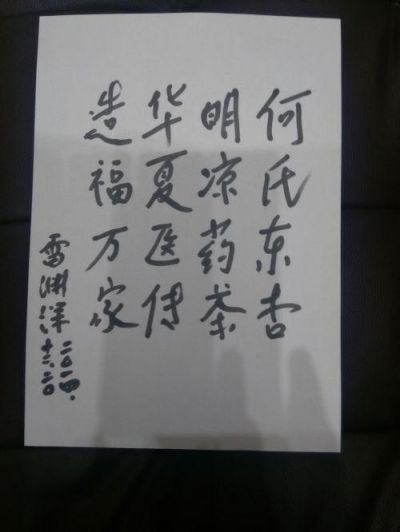 何氏东杏
明凉药茶
华夏医传
造福万家
雷渊深
二〇一四.
十二.二〇